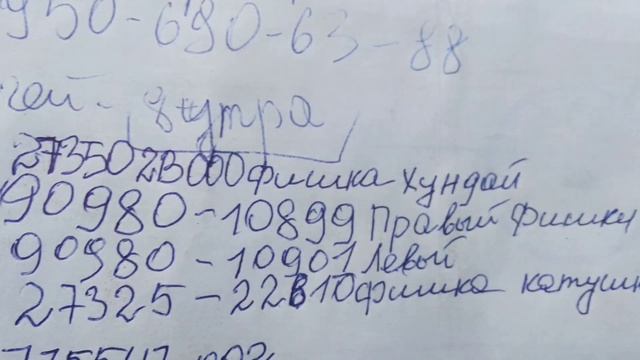 950-690-63-88
8 утра
27350 2B000 фишка Хундай
90980-10899 Правый Фишки
90980-10901 Левый
27325-22610 фишка катуш